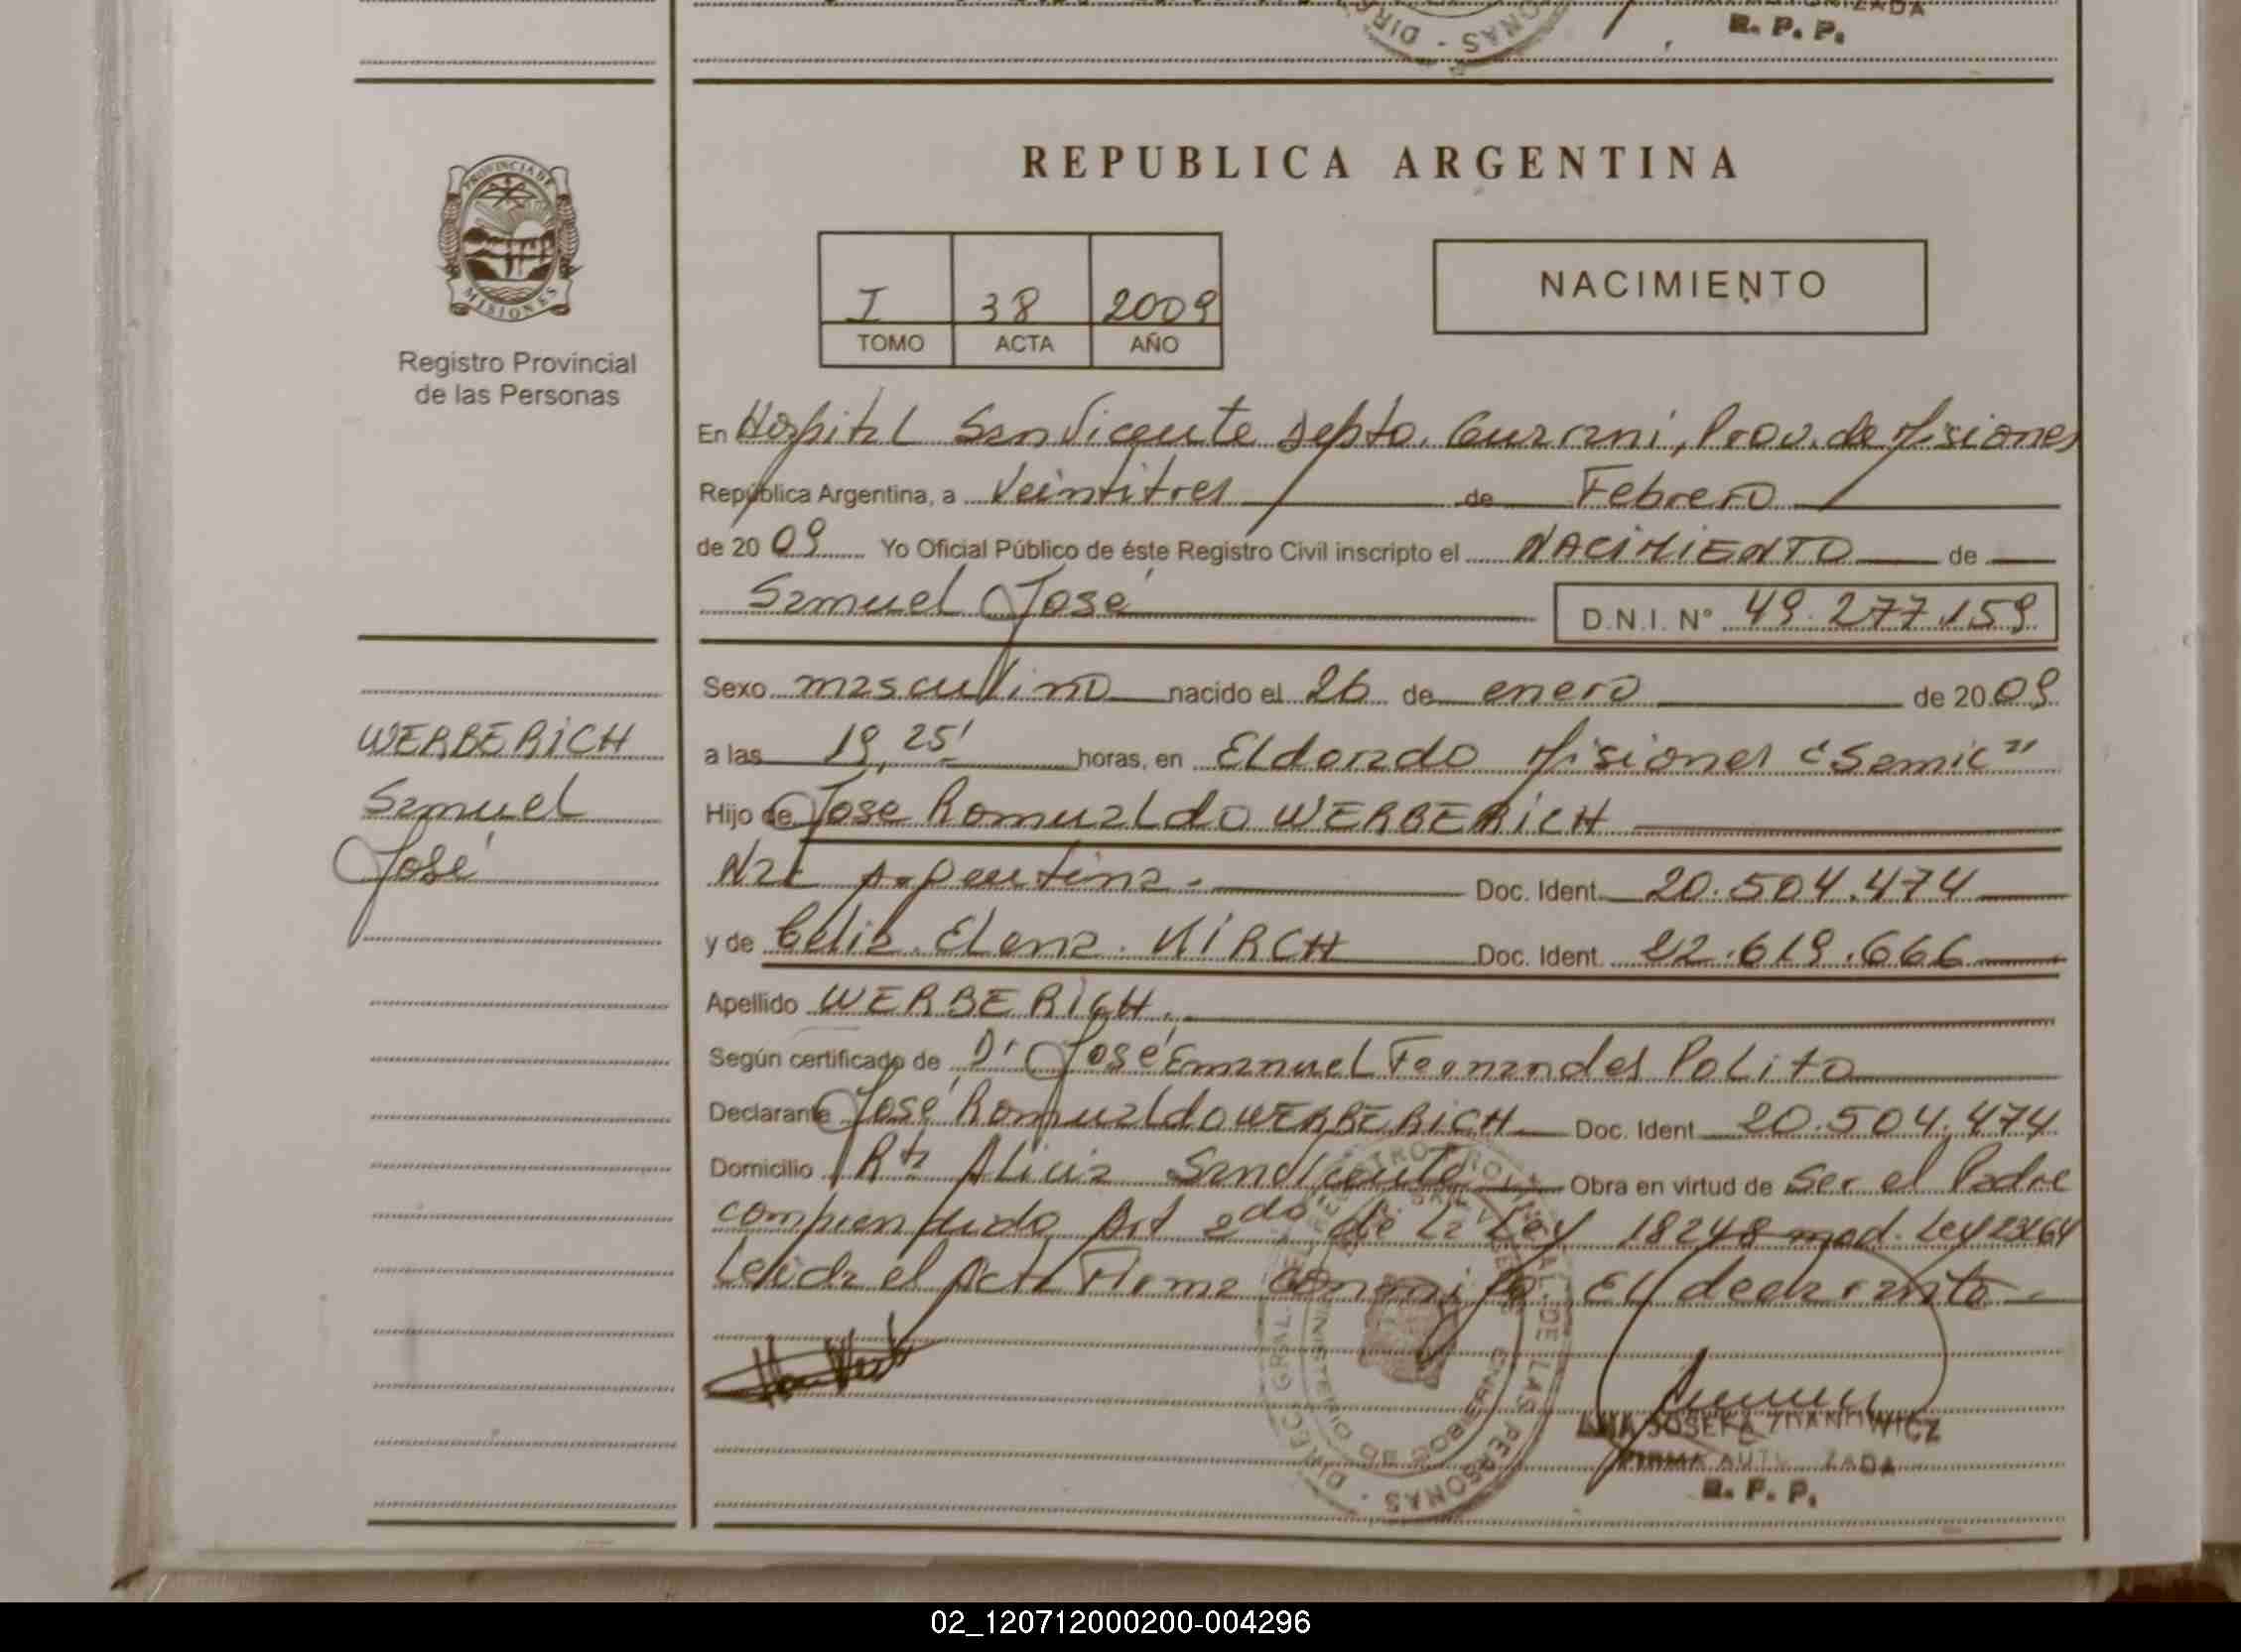 R. P. P.
PROVINCIA DE
MISIONES
Registro Provincial
de las Personas
REPUBLICA ARGENTINA
I 38 2009
TOMO ACTA AÑO
NACIMIENTO
En Hospital San Vicente Depto. Guarani, Prov. de Misiones
República Argentina, a Veintitres de Febrero
de 20 09 Yo Oficial Público de éste Registro Civil inscripto el NACIMIENTO de
Samuel José D.N.I. Nº 49.277.159
Sexo masculino nacido el 26 de enero de 20 09
WERBERICH
Samuel
José
a las 19,25' horas, en Eldorado Misiones "Samic"
Hijo de Jose Romualdo WERBERICH
Nat Argentina. Doc. Ident. 20.504.474
y de Celia Elena KIRCH Doc. Ident. 22.619.666
Apellido WERBERICH.
Según certificado de Dr José Emanuel Fernandes Polito
Declarante José Romualdo WERBERICH Doc. Ident 20.504.474
Domicilio Rta Alicia San Vicente Obra en virtud de Ser el Padre
comprendido Art 2do de la Ley 18248 mod. Ley 23264
Leida el Acta Firma conmigo El declarante.
JOSEFA
FIRMA
R. P. P.
02_120712000200-004296